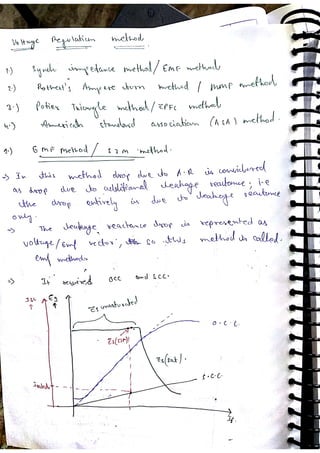 Voltage Regulation method
1.) Synch impedance method/EMF method
2.) Rothert's Ampere turn method / MMF method
3.) Potier Triangle method/ZPFC method
4.) American standard association (ASA) method.
1.) EMF method / SIM method.
→ In this method drop due to A.R is considered
as drop due to additional leakage reactance; i.e
the drop entirely is due to leakage reactance
only.
→ The leakage reactance drop is represented as
voltage/emf vector, so this method is called
emf method.
→ It required OCC and SCC.
Zs unsaturated
O.C.C.
Zs(sat)
Zs(sat).
S.C.C
If